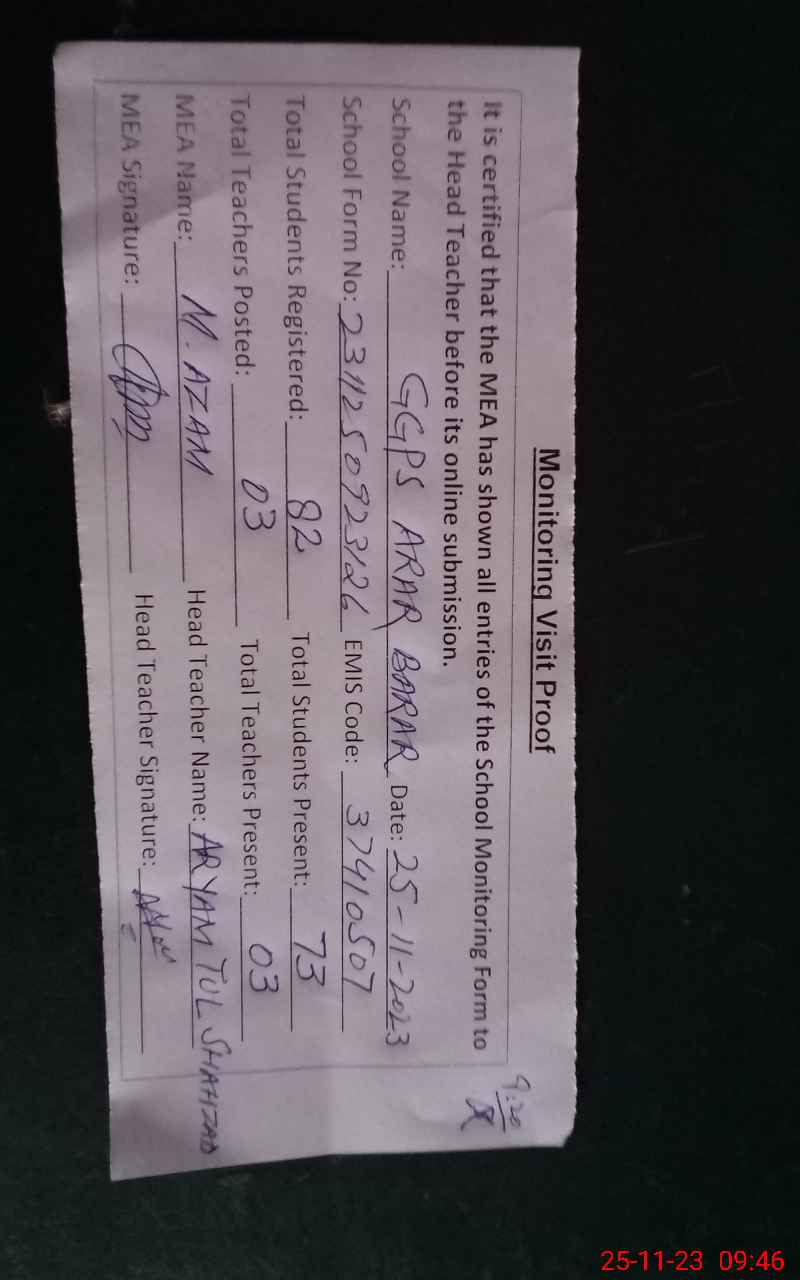 Monitoring Visit Proof
It is certified that the MEA has shown all entries of the School Monitoring Form to
the Head Teacher before its online submission.
School Name: GGPS ARAR BARAR Date: 25-11-2023
School Form No: 2311250923126 EMIS Code: 37410507
Total Students Registered: 82 Total Students Present: 73
Total Teachers Posted: 03 Total Teachers Present: 03
MEA Name: M. AZAM Head Teacher Name: ARYAM TUL SHAHZAD
MEA Signature: Head Teacher Signature:
9:20
25-11-23 09:46